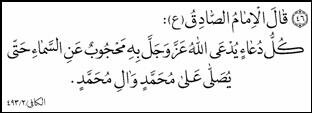 (٤٦) قَالَ الْإِمَامُ الصَّادِقُ (ع):
كُلُّ دُعَاءٍ يُدْعَى اللهُ عَزَّ وَجَلَّ بِهِ مَحْجُوبٌ عَنِ السَّمَاءِ حَتَّى
يُصَلَّى عَلَىٰ مُحَمَّدٍ وَآلِ مُحَمَّدٍ.
الكافي/٢/٤٩٣